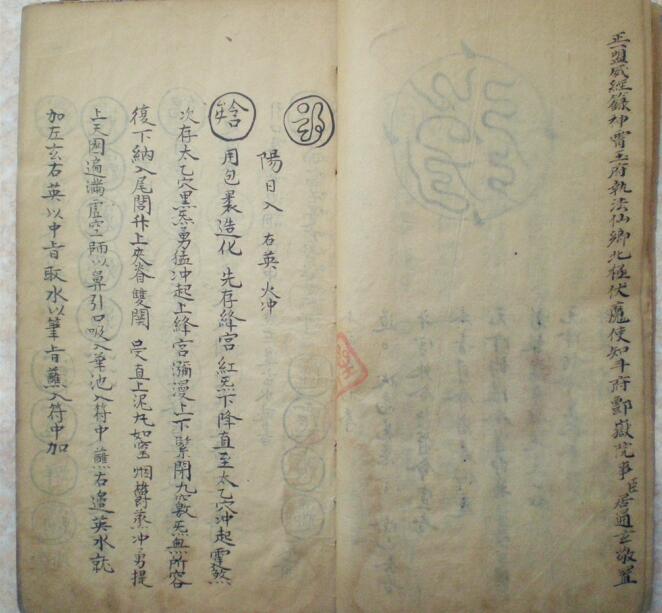 正一盟威經籙神霄玉府執法仙卿北極伏魔使知斗府酆嶽院事臣居通玄敬置
陽日入 右英火冲
用包裹造化 先存絳宮紅炁下降直至太乙穴冲起
次存太乙穴黑炁勇猛冲起上絳宮瀰漫上下緊閉九竅炁無所容
復下納入尾閭升上夾脊雙關 直上泥丸如 烟 蒸冲勇提
上天圓遍滿虛空師以鼻引口吸入筆池入符中蘸右邉英水就
加左玄右英以中指取水以筆指蘸入符中加